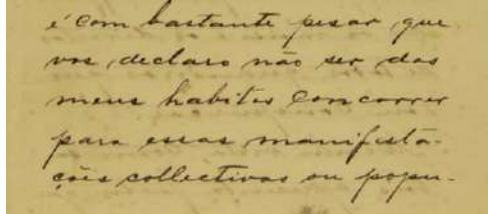 é com bastante pesar, que
vos declaro não ser dos
meus habitos concorrer
para essas manifesta-
ções collectivas ou popu-